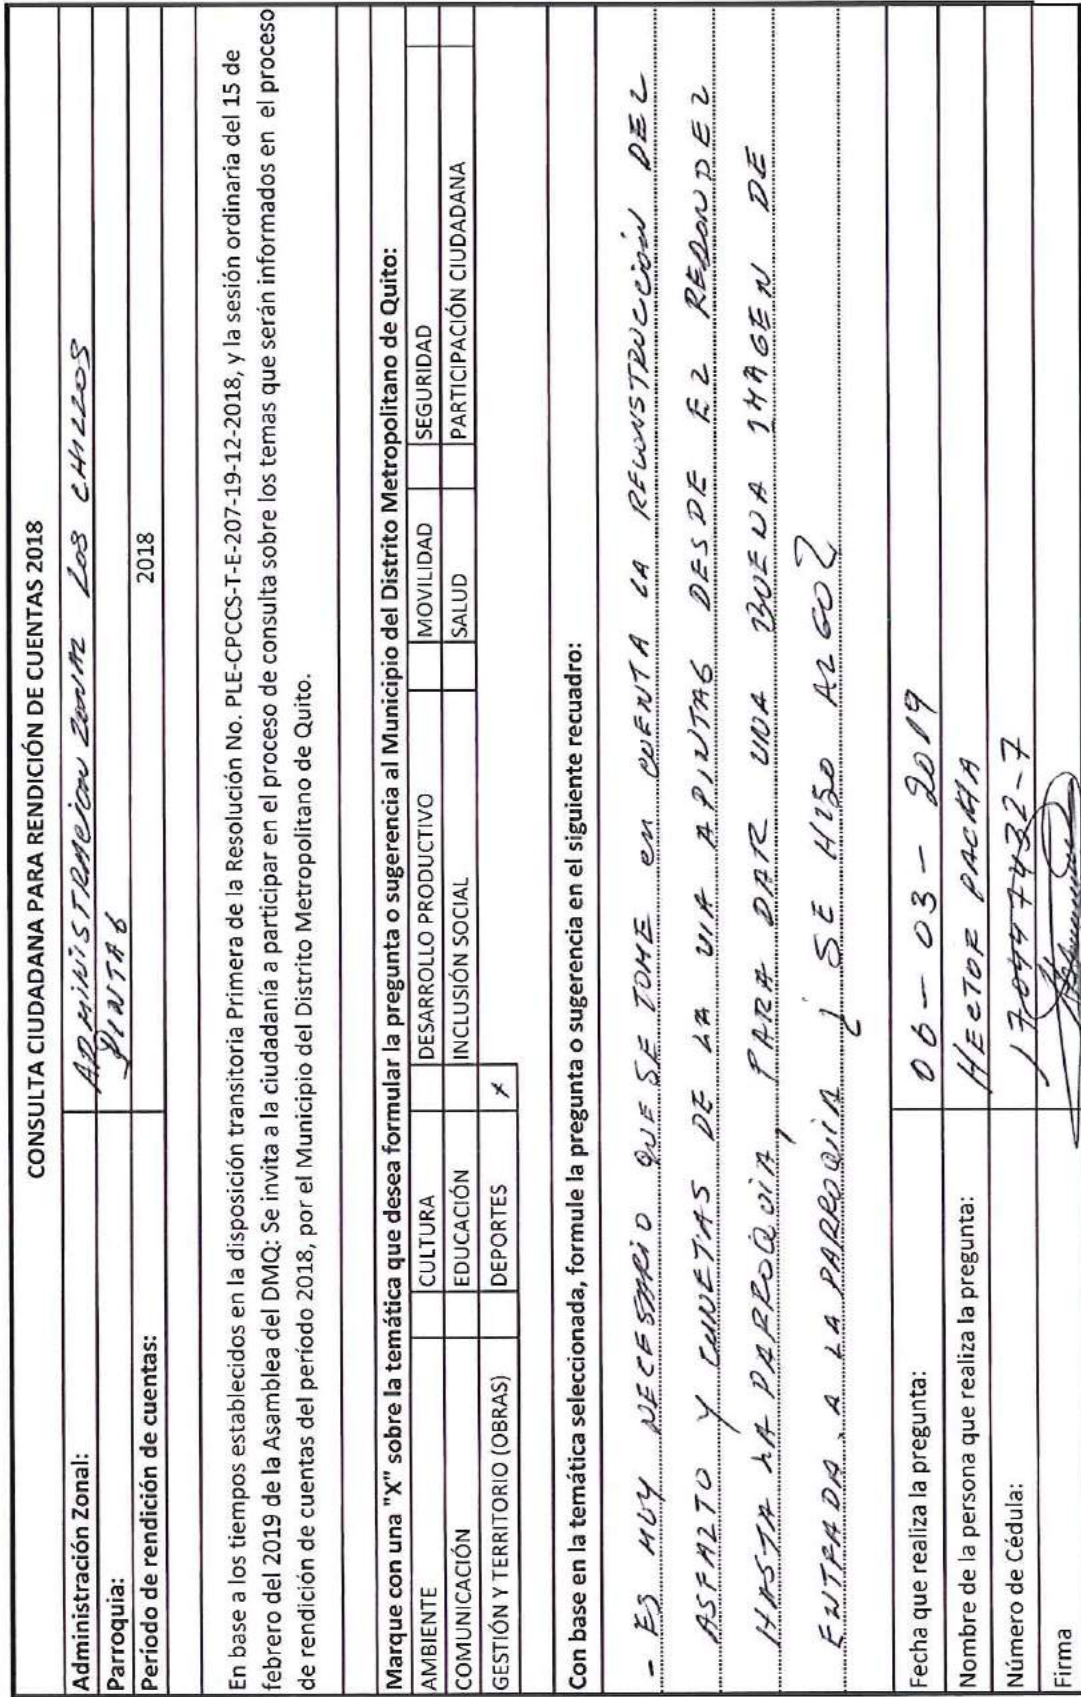 CONSULTA CIUDADANA PARA RENDICIÓN DE CUENTAS 2018
Administración Zonal: ADMINISTRACION ZONAL LOS CHILLOS
Parroquia: PINTAG
Período de rendición de cuentas: 2018
En base a los tiempos establecidos en la disposición transitoria Primera de la Resolución No. PLE-CPCCS-T-E-207-19-12-2018, y la sesión ordinaria del 15 de
febrero del 2019 de la Asamblea del DMQ: Se invita a la ciudadanía a participar en el proceso de consulta sobre los temas que serán informados en el proceso
de rendición de cuentas del período 2018, por el Municipio del Distrito Metropolitano de Quito.
Marque con una "X" sobre la temática que desea formular la pregunta o sugerencia al Municipio del Distrito Metropolitano de Quito:
AMBIENTE CULTURA DESARROLLO PRODUCTIVO MOVILIDAD SEGURIDAD
COMUNICACIÓN EDUCACIÓN INCLUSIÓN SOCIAL SALUD PARTICIPACIÓN CIUDADANA
GESTIÓN Y TERRITORIO (OBRAS) DEPORTES X
Con base en la temática seleccionada, formule la pregunta o sugerencia en el siguiente recuadro:
- ES MUY NECESARIO QUE SE TOME EN CUENTA LA RECONSTRUCCIÓN DEL
ASFALTO Y CUNETAS DE LA VIA A PINTAG DESDE EL REDONDEL
HASTA LA PARROQUIA, PARA DAR UNA BUENA IMAGEN DE
ENTRADA A LA PARROQUIA ¿ SE HIZO ALGO?
Fecha que realiza la pregunta: 06-03-2019
Nombre de la persona que realiza la pregunta: HECTOR PACHA
Número de Cédula:
Firma